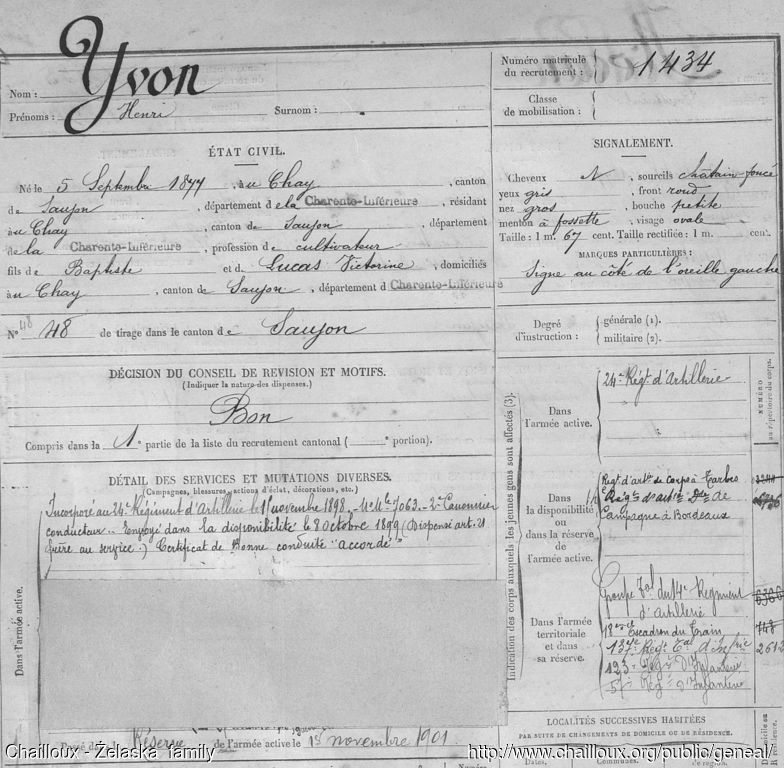 Yvon
Nom :
Prénoms : Henri Surnom :
ÉTAT CIVIL.
Né le 5 Septembre 1877, à u Chay, canton
de Saujon, département de la Charente-Inférieure, résidant
à u Chay, canton de Saujon, département
de la Charente-Inférieure, profession de cultivateur
fils de Baptiste et de Lucas Victorine, domiciliés
à u Chay, canton de Saujon, département d Charente-Inférieure
N° 48 48 de tirage dans le canton de Saujon
DÉCISION DU CONSEIL DE REVISION ET MOTIFS.
(Indiquer la nature des dispenses.)
Bon
Compris dans la 1e partie de la liste du recrutement cantonal ( e portion).
DÉTAIL DES SERVICES ET MUTATIONS DIVERSES.
(Campagnes, blessures, actions d'éclat, décorations, etc.)
Incorporé au 24e Régiment d'Artillerie le 1 novembre 1898. Mle 7063. 2e Canonnier
conducteur. Envoyé dans la disponibilité le 8 Octobre 1899 (Dispensé art. 21
frère au service.) Certificat de Bonne conduite "accordé"
Dans l'armée active.
Réserve de l'armée active le 1er novembre 1901
Numéro matricule
du recrutement : 1434
Classe
de mobilisation :
SIGNALEMENT.
Cheveux N, sourcils châtain foncé
yeux gris, front rond
nez gros, bouche petite
menton à fossette, visage ovale
Taille : 1 m. 67 cent. Taille rectifiée : 1 m. cent.
MARQUES PARTICULIÈRES :
Signe au côté de l'oreille gauche
Degré
d'instruction :
générale (1).
militaire (2).
Indication des corps auxquels les jeunes gens sont affectés (3).
NUMÉRO
au répertoire du corps.
Dans
l'armée active.
24e Régt d'Artillerie
Dans
la disponibilité
ou
dans la réserve
de
l'armée active.
Régt d'arties de Corps à Tarbes
Campagne à Bordeaux
Dans l'armée
territoriale
et dans
sa réserve.
Groupe Tal du 14e Régiment
d'Artillerie
18e Escadron du Train
137e Régt Tal d'Infrie 2612
123e Régt d'Infanterie
57e Régt d'Infanterie
LOCALITÉS SUCCESSIVES HABITÉES
PAR SUITE DE CHANGEMENTS DE DOMICILE OU DE RÉSIDENCE.
Dates. Communes.
Chailloux - Żelaska family
http://www.chailloux.org/public/geneal/